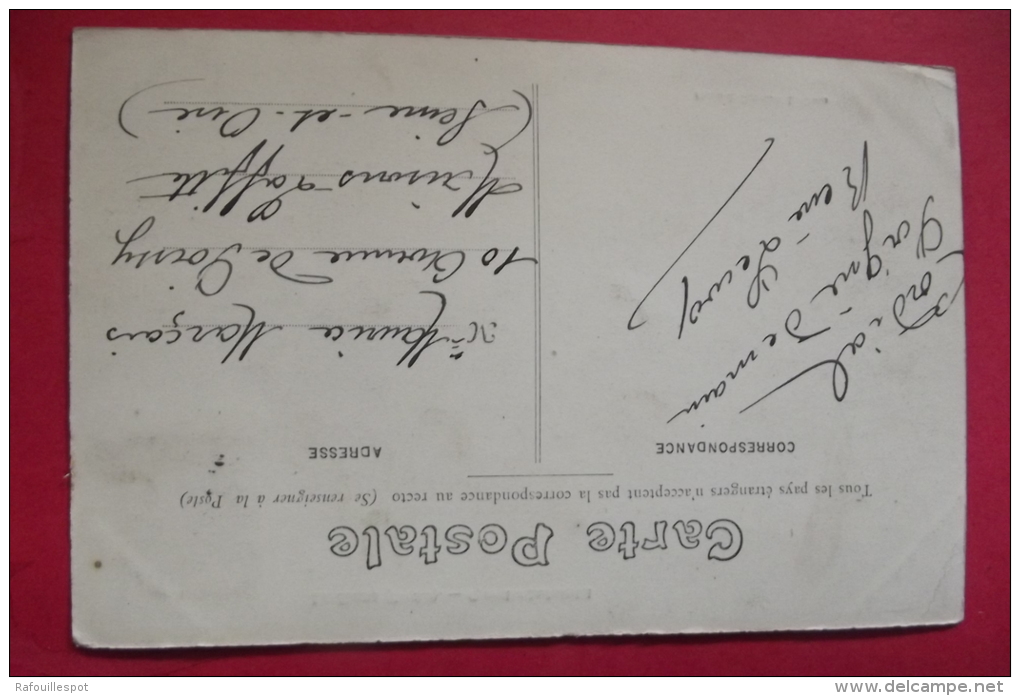 Carte Postale
Tous les pays étrangers n'acceptent pas la correspondance au recto (Se renseigner à la Poste)
CORRESPONDANCE
ADRESSE
Cordial
demain
René
Maurice Marçais
10 Avenue De Poissy
Maisons-Laffitte
(Seine-et-Oise)
Rafouillespot
www.delcampe.net